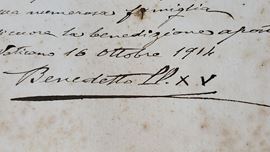 sua numerosa famiglia
di cuore la benedizione apos
Vaticano 16 Ottobre 1914
Benedetto PP. XV